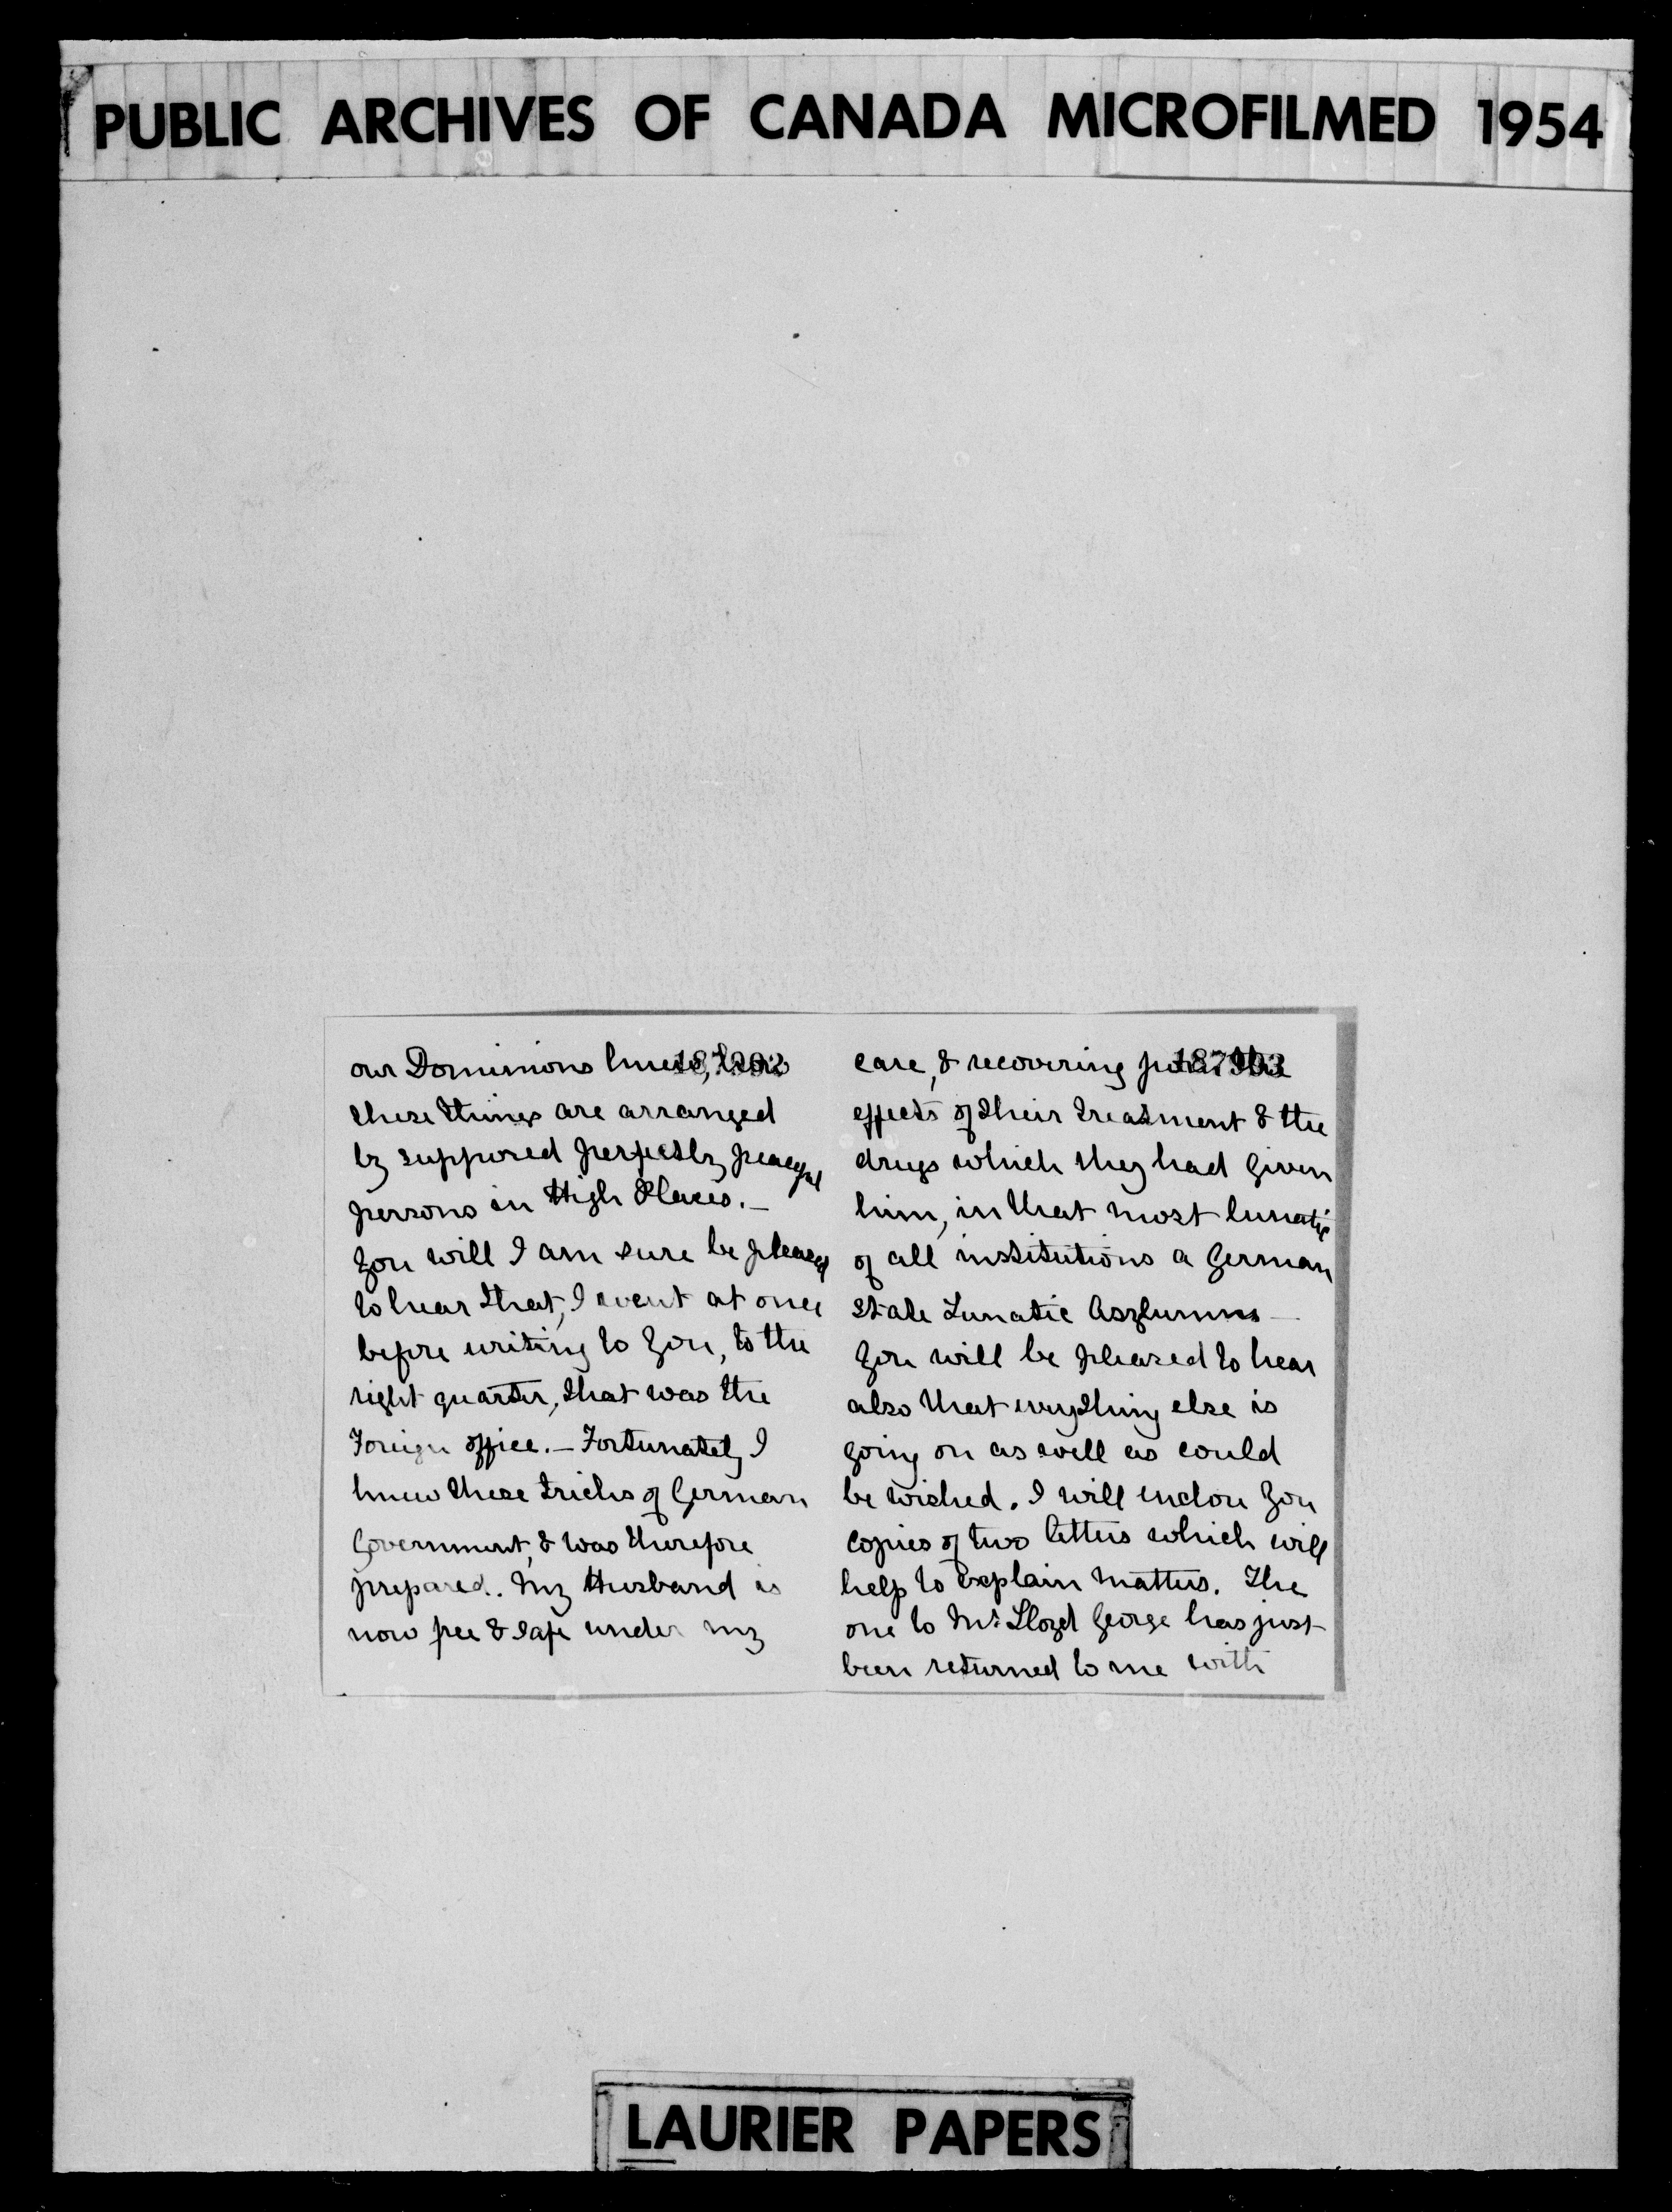 PUBLIC ARCHIVES OF CANADA MICROFILMED 1954
our Dominions knew, how
187902
these things are arranged
by supposed perfectly peaceful
persons in High Places. —
You will I am sure be pleased
to hear that, I went at once
before writing to you, to the
right quarter, that was the
Foreign office. — Fortunately I
knew these tricks of German
Government, & was therefore
prepared. My Husband is
now free & safe under my
care, & recovering from the
187903
effects of their treatment & the
drugs which they had given
him, in that most lunatic
of all institutions a German
State Lunatic Asylumns —
You will be pleased to hear
also that everything else is
going on as well as could
be wished. I will enclose you
copies of two letters which will
help to explain matters. The
one to Mr Lloyd George has just
been returned to me with
LAURIER PAPERS